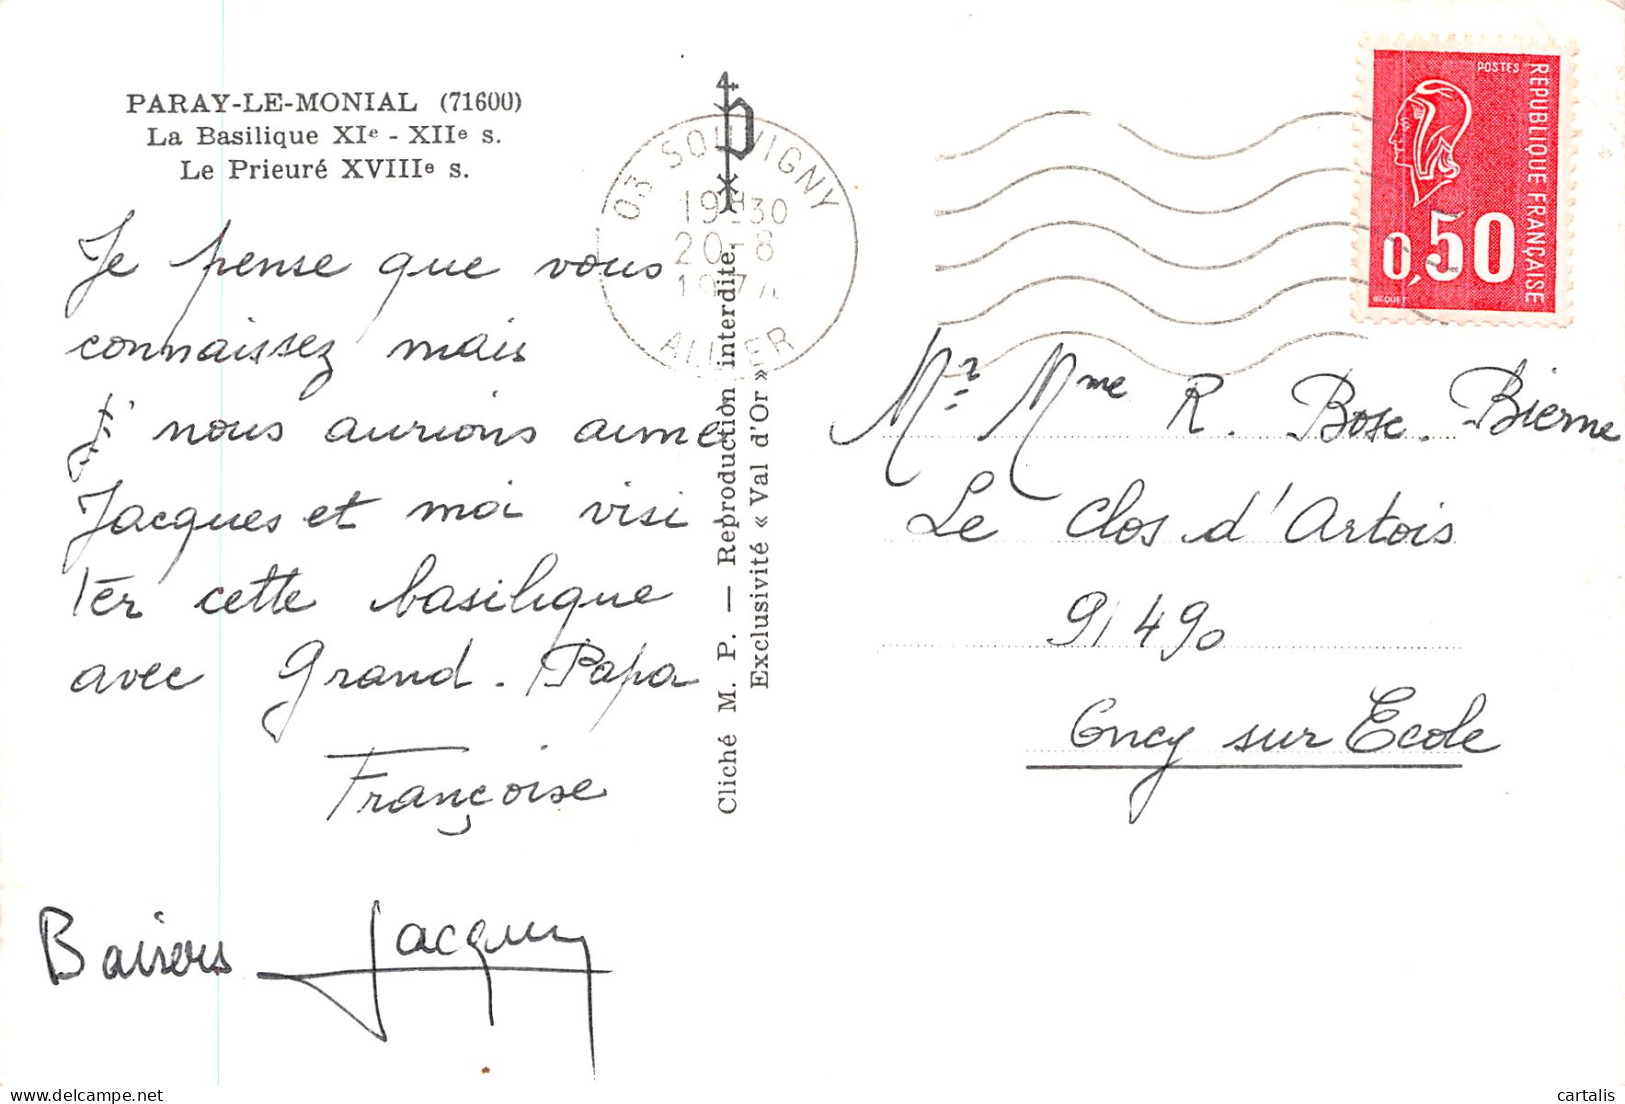 PARAY-LE-MONIAL (71600)
La Basilique XIe - XIIe s.
Le Prieuré XVIIIe s.
Je pense que vous
connaissez mais
nous aurions aimé
Jacques et moi visi
ter cette basilique
avec Grand-Papa
Françoise
Baisers Jacques
Cliché M. P. — Reproduction interdite.
Exclusivité « Val d'Or »
03 SOUVIGNY
19H30
20-8
ALLIER
POSTES
REPUBLIQUE FRANÇAISE
0,50
BEQUET
Mr Mme R. Bosc. Bierne
Le Clos d'Artois
91490
Oncy sur Ecole
cartalis